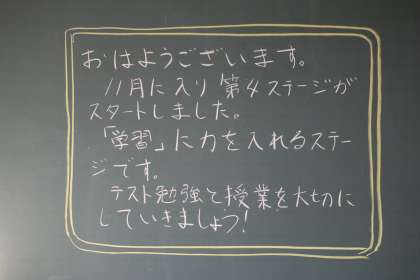 おはようございます。
11月に入り第4ステージが
スタートしました。
「学習」に力を入れるステー
ジです。
テスト勉強と授業を大切に
していきましょう!